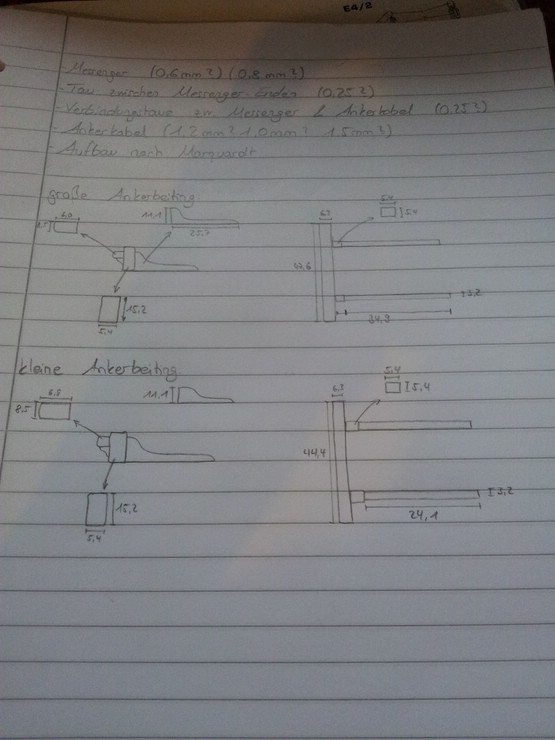 EA/2
- Messenger (0,6mm?) (0,8mm?)
- Tau zwischen Messenger-Enden (0,25?)
- Verbindungstaue zw. Messenger & Ankerkabel (0,25?)
- Ankerkabel (1,2mm? 1,0mm? 1,5mm?)
- Aufbau nach Marquardt
große Ankerbeting:
6,3
8,5
11,1
25,7
15,2
5,4
6,3
5,4
5,4
47,6
3,2
kleine Ankerbeting:
6,3
8,5
11,1
15,2
5,4
6,3
5,4
5,4
44,4
3,2
24,1